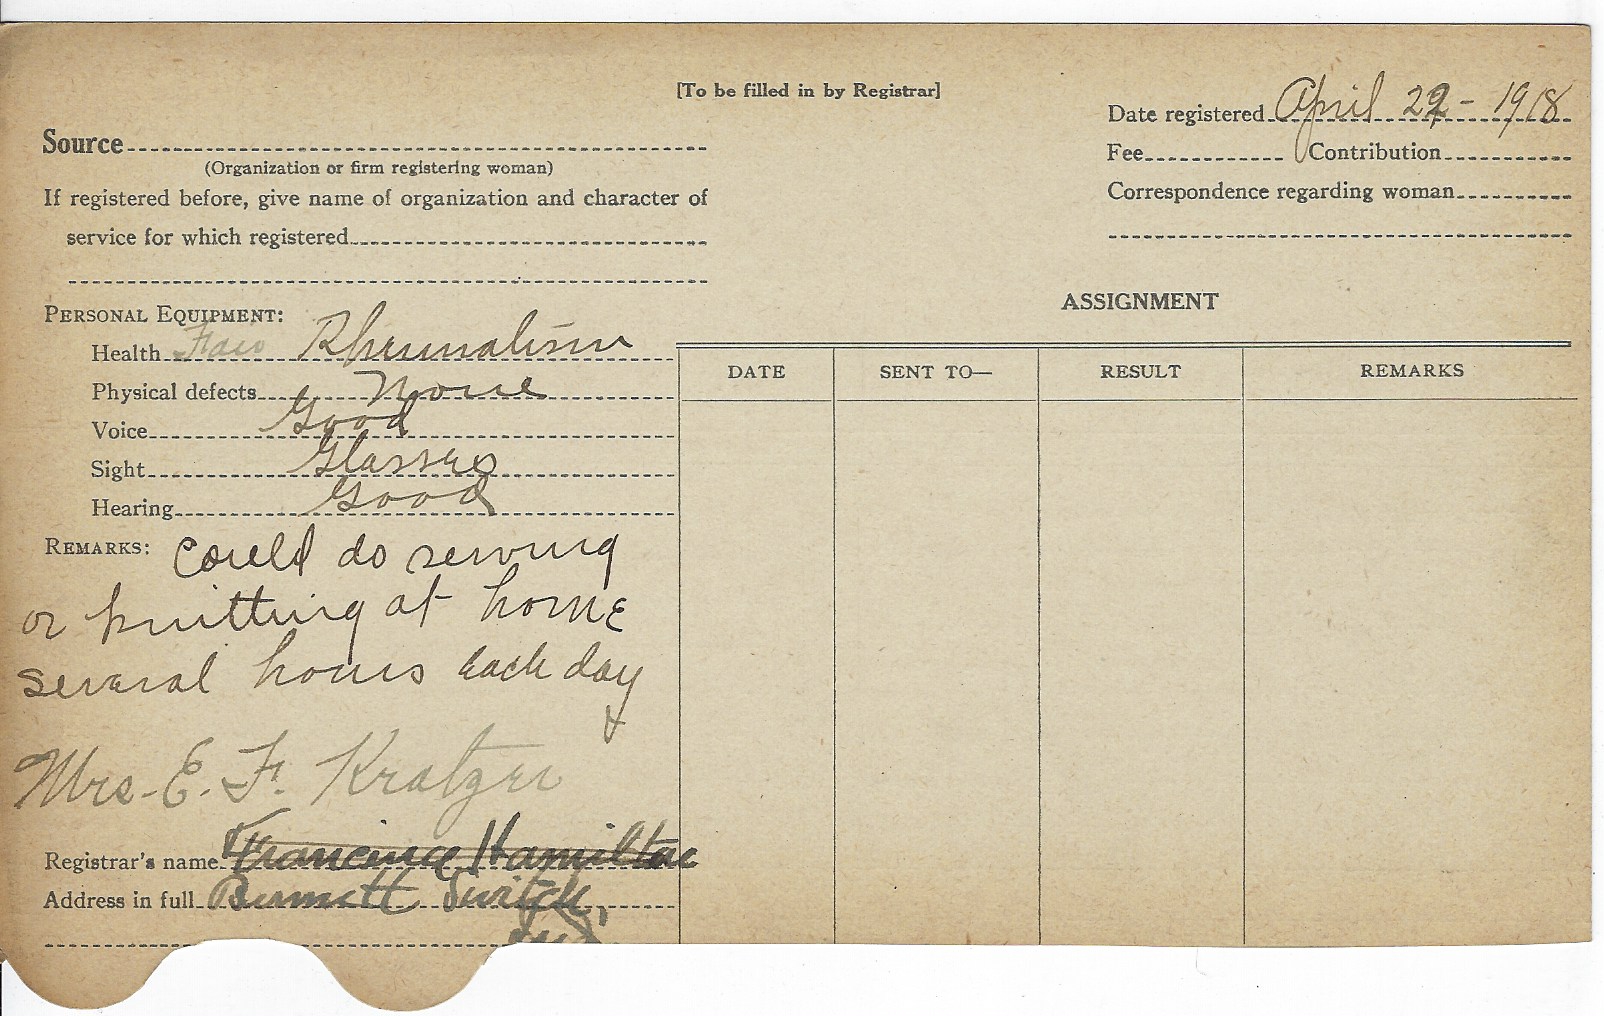 [To be filled in by Registrar]
Date registered April 22 - 1918
Source
(Organization or firm registering woman)
Fee Contribution
If registered before, give name of organization and character of
service for which registered
Correspondence regarding woman
PERSONAL EQUIPMENT:
ASSIGNMENT
Health Fair Rheumatism
Physical defects None
Voice Good
Sight Glasses
Hearing Good
DATE SENT TO— RESULT REMARKS
REMARKS: Could do sewing
or knitting at home
several hours each day
Mrs. E. F. Kratzer
Registrar's name Hamilton
Address in full Burnett Switch,